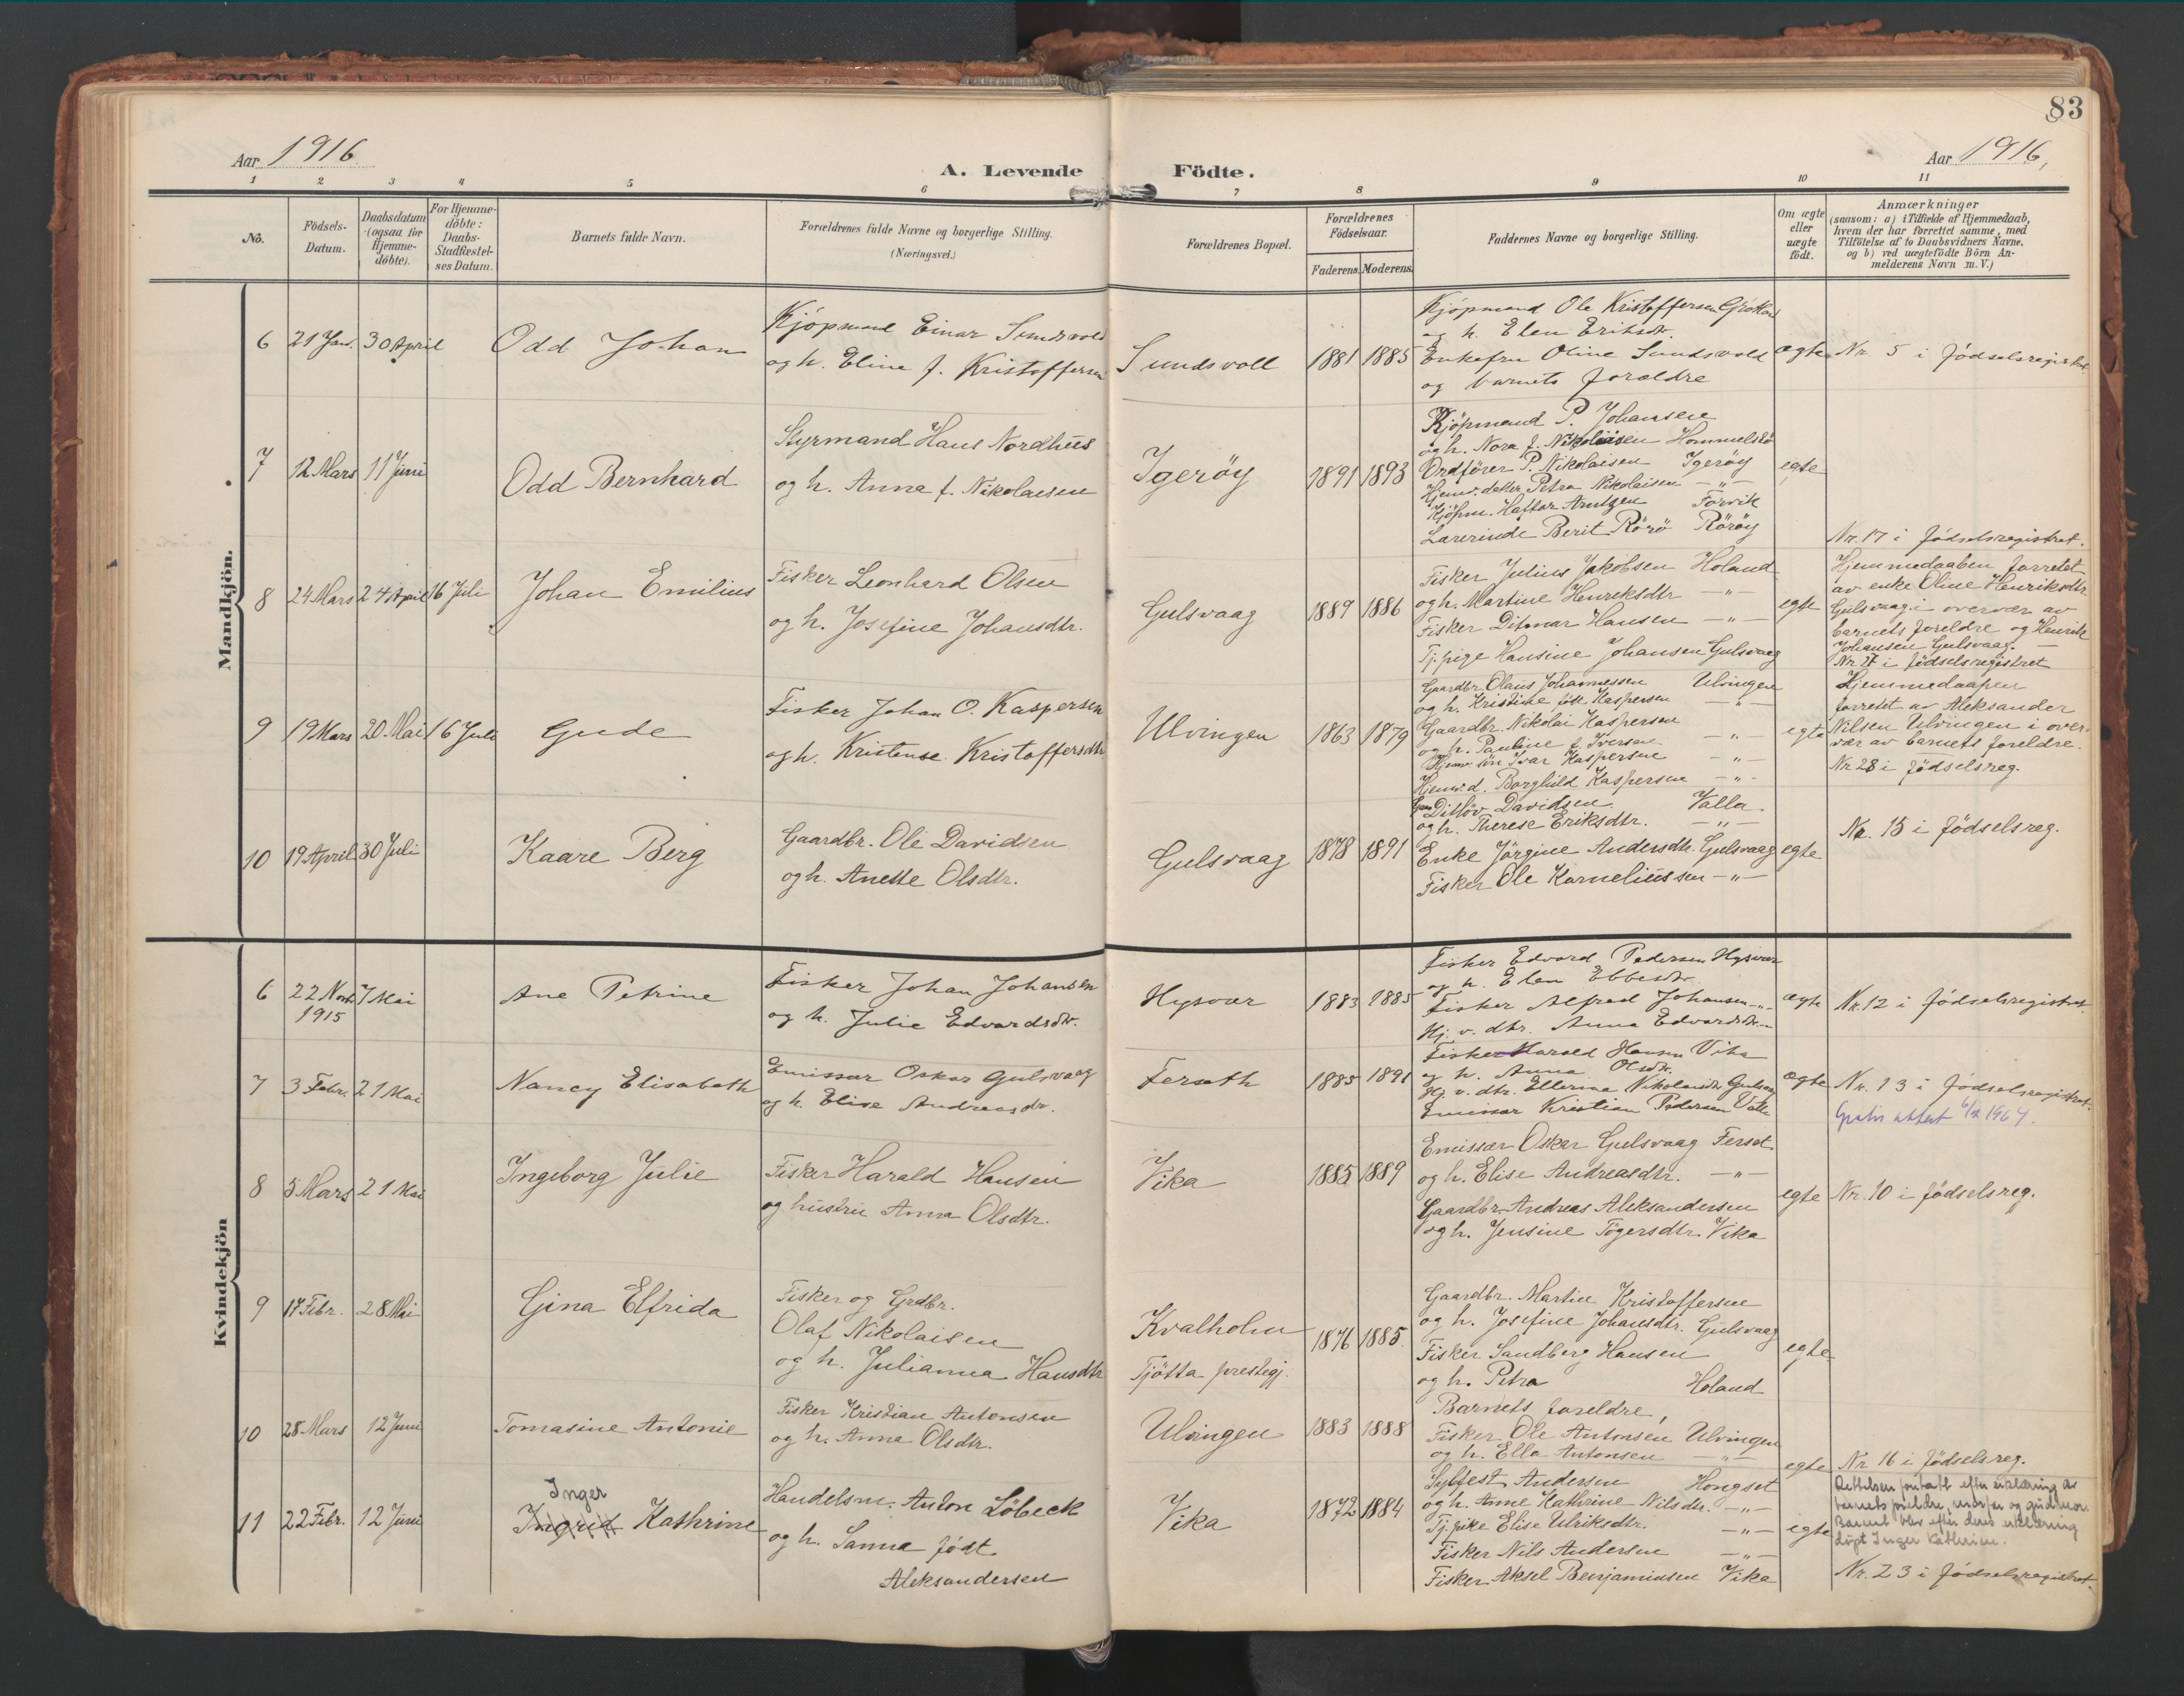 83
Aar 1916.
A. Levende Födte.
Aar 1916,
1 2 3 4 5 6 7 8 9 10 11
No.
Födsels-
Datum.
Daabsdatum
(ogsaa for
Hjemme-
döbte).
For Hjemme-
döbte:
Daabs-
Stadfæstel-
ses Datum.
Barnets fulde Navn.
Forældrenes fulde Navne og borgerlige Stilling.
(Næringsvei.)
Forældrenes Bopæl.
Forældrenes
Födselsaar.
Faderens. Moderens.
Faddernes Navne og borgerlige Stilling.
Om ægte
eller
uægte
födt.
Anmærkninger
(saasom: a) i Tilfælde af Hjemmedaab,
hvem der har forrettet samme, med
Tilföielse af to Daabsvidners Navne,
og b) ved uægtefödte Börn An-
melderens Navn m. V.)
Mandkjön.
6 21 Jan. 30 April
Odd Johan
Kjöpmand Einar Sundsvold
og h. Eline f. Kristoffersen
Sundsvoll
1881 1885
Kjöpmand Ole Kristoffersen
og h. Elen Eriksdtr.
Enkefru Oline Sundsvold
og barnets foreldre
ægte
Nr. 5 i födselsregistret
7 12 Mars 11 Juni
Odd Bernhard
Styrmand Hans Nordhus
og h. Anna f. Nikolaisen
Igeröy
1891 1893
Kjöpmand P. Johansen
og h. Nora f. Nikolaisen
Ordförer P. Nikolaisen Igeröy
Hjemv. datter Petra Nikolaisen -"-
Kjöpm. Haftor Arntzen Forvik
Lærerinde Berit Rörö Röröy
egte
Nr. 17 i födselsregistret.
8 24 Mars 24 April 16 Juli
Johan Emilius
Fisker Leonhard Olsen
og h. Josefine Johansdtr.
Gulsvaag
1889 1886
Fisker Julius Jakobsen Holand
og h. Martine Henriksdtr -"-
Fisker Ditmar Hansen -"-
Tj. pige Hansine Johansen Gulsvaag
egte
Hjemmedaaben forretet
av enke Oline Henriksdtr.
Gulsvaag i overvær av
barnets foreldre og Henrik
Johansen Gulsvaag.
Nr. 27 i födselsregistret
9 19 Mars 20 Mai 16 Juli
Gude
Fisker Johan O. Kaspersen
og h. Kristense Kristoffersdtr.
Ulvingen
1863 1879
Gaardbr. Olaus Johannessen Ulvingen
og h. Kristine födt Kaspersen -"-
Gaardbr. Nikolai Kaspersen
og h. Pauline f. Iversen -"-
Hjemv. sön Ivar Kaspersen -"-
Hjemv. d. Borghild Kaspersen -"-
egte
Hjemmedaapen
forretet av Aleksander
Nilsen Ulvingen i over-
vær av barnets foreldre.
Nr. 28 i födselsreg.
10 19 April 30 Juli
Kaare Berg
Gaardbr. Ole Davidsen
og h. Anette Olsdtr.
Gulsvaag
1878 1891
Ditlöv Davidsen. Valla.
og h. Therese Eriksdtr. -"-
Enke Jörgine Andersdtr. Gulsvaag
Fisker Ole Korneliussen -"-
egte
Nr. 15 i födselsreg.
Kvindekjön
6 22 Novb. 7 Mai
1915
Ane Petrine
Fisker Johan Johansen
og h. Julie Edvardsdtr.
Hysvær
1883 1885
Fisker Edvard Pedersen Hysvær
og h. Elen Ebbesdtr
Fisker Alfred Johansen -"-
Hj. v. dtr. Anna Edvardsdtr. -"-
ægte
Nr. 12 i födselsregistret.
7 3 Febr. 21 Mai
Nancy Elisabeth
Emissær Oskar Gulsvaag
og h. Elise Andreasdtr.
Ferseth
1885 1891
Fisker Harald Hansen Vika
og h. Anna Olsdtr.
Hj. v. dtr. Ellerina Nikolaisdtr. Gulsvaag
Emissær Kristian Pedersen Valla
ægte
Nr. 13 i födselsregistret.
Gratis attest 1964.
8 5 Mars 21 Mai
Ingeborg Julie
Fisker Harald Hansen
og hustru Anna Olsdtr.
Vika
1885 1889
Emissær Oskar Gulsvaag Ferset
og h. Elise Andreasdtr. -"-
Gaardbr. Andreas Aleksandersen
og h. Jensine Tögersdtr. Vika
egte
Nr. 10 i födselsreg.
9 17 Febr. 28 Mai
Gina Elfrida
Fisker og Grdbr.
Olaf Nikolaisen
og h. Julianna Hansdtr
Kvalholm
Tjötta prestegj.
1876 1885.
Gaardbr. Martin Kristoffersen
og h. Josefine Johansdtr. Gulsvaag
Fisker Sandberg Hansen
og h. Petra Holand
egte
10 28 Mars 12 Juni
Tomasine Antonie
Fisker Kristian Antonsen
og h. Anna Olsdtr.
Ulvingen
1883 1888
Barnets foreldre,
Fisker Ole Antonsen Ulvingen
og h. Ella Antonsen -"-
egte
Nr. 16 i födselsreg.
11 22 Febr. 12 Juni
Inger
Ingrid Kathrine
Handelsm. Anton Löbeck
og h. Sanna födt
Aleksandersen
Vika
1872 1884
Sylfest Andersen Hongset
og h. Anne Kathrine Nilsdtr. -"-
Tj. pike Elise Ulriksdtr. -"-
Fisker Nils Andersen -"-
Fisker Aksel Benjaminsen Vika
egte
Rettelsen foretatt efter erklæring av
barnets foreldre, morfar og gudmor.
Barnet blev efter deres erklæring
döpt Inger Kathrine.
Nr. 23 i födselsregistret.